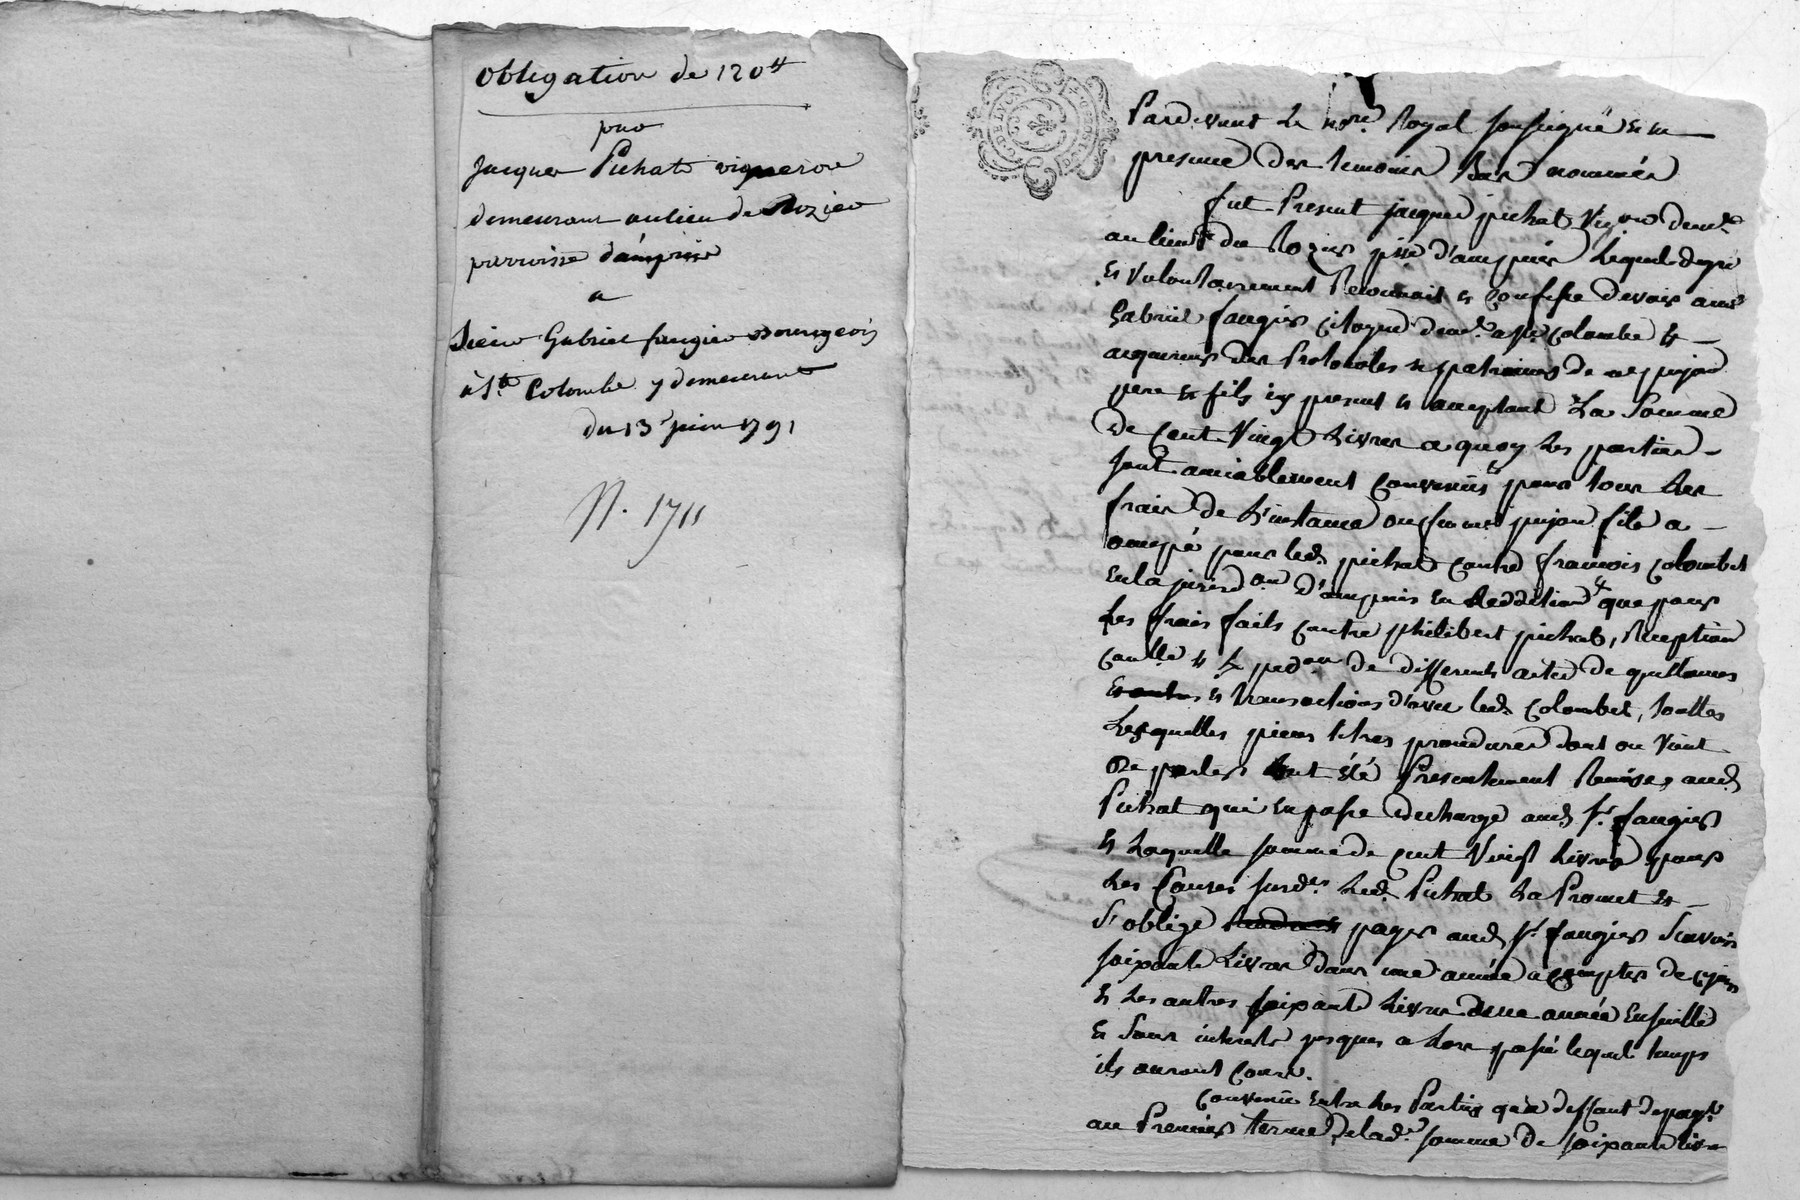 Obligation de 120tt
par
Jacques Pichat vigneron
demeurant au lieu de Rozier
parroisse d'ampuis
a
Sieur Gabriel faugier Bourgeois
à Ste Colombe y demeurant
du 13 juin 1791
N. 1711
G. DE LYON
Pardevant Le nore Royal soussigné & en
presence des temoins Bas nommés
fut Present jacques pichat Vig.on demt
au lieu de Rozier psse d'ampuis Lequel de gré
& volontairement Reconnait & Confesse devoir au sr
Gabriel faugier Citoyen demt a ste Colombe &
acquereur des Protocoles & patrimes de me pujon
pere & fils icy present & acceptant La Somme
de Cent Vingt Livres a quoy Les parties
sont amiablement Convenus pour tous Les
frais de L'instance que feu me pujon fils a
occupé pour led. pichat contre francois Colombet
En la jurisd.on d'ampuis en Reddition & que pour
Les frais faits contre philibert pichat, Reception
contlle & Expedon de differents actes de quittances
& transactions d'avec led. Colombet, touttes
Lesquelles pieces titres procedures dont on Vient
De parler ont été Presentement Remises aud.
Pichat qui En passe decharge aud. sr. faugier
& Laquelle somme de cent Vingt Livres pour
Les Causes susd.es Led. Pichat La Promet &
S'oblige payer aud. sr. faugier Scavoir
soixante Livres dans une année a compter de ce jour
& Les autres soixante Livres d'une année Ensuitte
& Sans interets jusques a Lors passé lequel temps
ils auront Cours.
Convenu Entre Les Parties qu'a deffaut de payt
au Premier terme de lad.e somme de soixante livre